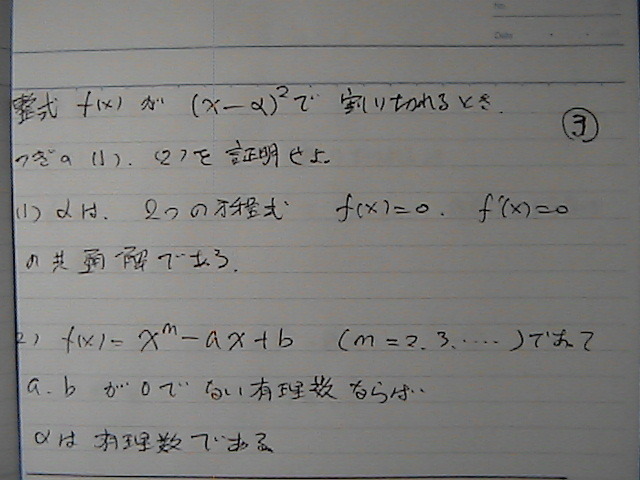 No.
Date
整式 f(x) が (x-α)²で 割り切れるとき.
③
つぎの (1). (2) を 証明せよ.
(1) αは. 2つの方程式 f(x)=0. f'(x)=0
の共通解である.
2) f(x)= x^m - ax + b (m=2.3.....)であって
a.b が0でない有理数ならば..
αは有理数である